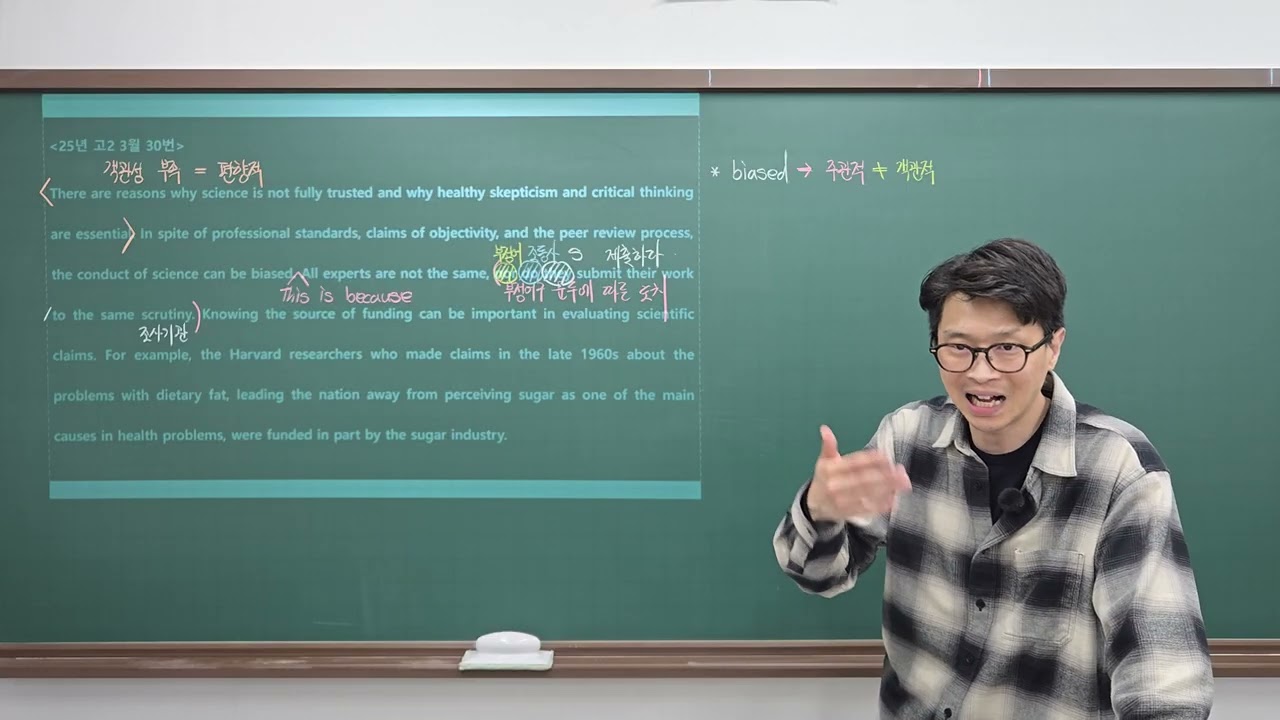 <25년 고2 3월 30번>
객관성 부족 = 편향적
There are reasons why science is not fully trusted and why healthy skepticism and critical thinking
* biased → 주관적 ≠ 객관적
are essential. In spite of professional standards, claims of objectivity, and the peer review process,
부정어 조동사 S 제출하다
the conduct of science can be biased. All experts are not the same, submit their work
This is because
부정어구 문두에 따른 도치
to the same scrutiny. Knowing the source of funding can be important in evaluating scientific
조사기관
claims. For example, the Harvard researchers who made claims in the late 1960s about the
problems with dietary fat, leading the nation away from perceiving sugar as one of the main
causes in health problems, were funded in part by the sugar industry.